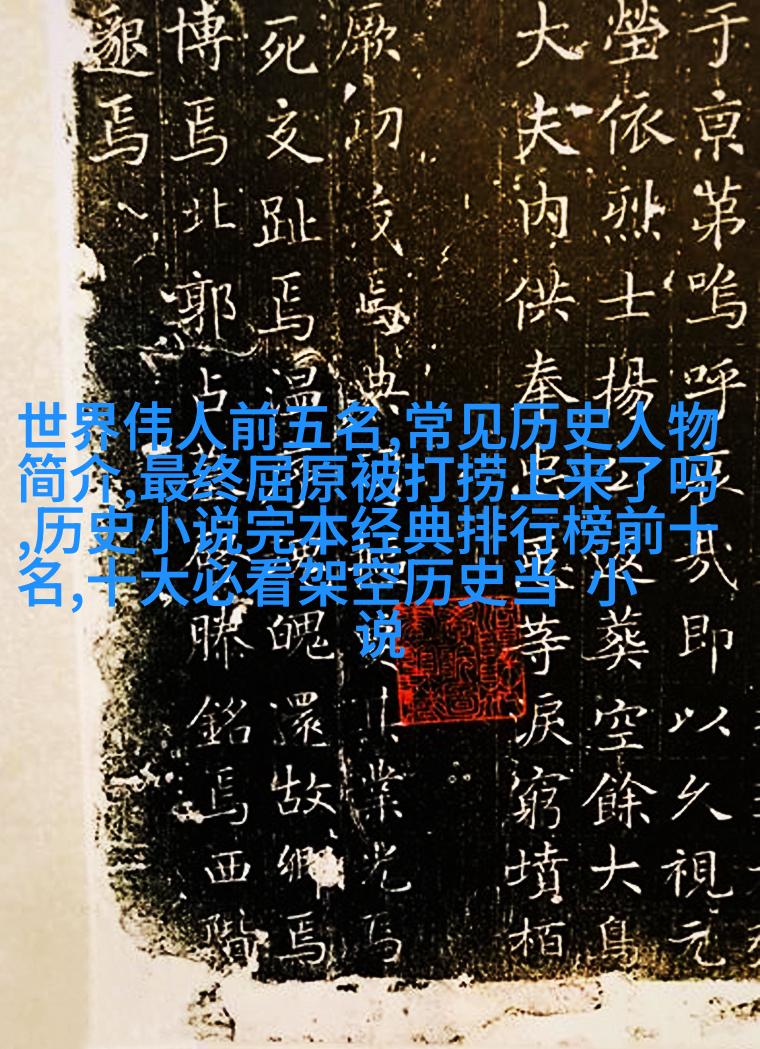 世界伟人前五名,常见历史人物
简介,最终屈原被打捞上来了吗
,历史小说完本经典排行榜前十
名,十大必看架空历史当 小
说
于京第嗚呼哀哉即以久視元
塋依烈士揚返葬空餘大鳥
大夫内供奉忠等淚窮墳栢
厥初焉典業光焉
死交趾焉温魄還故鄉焉
博焉北郭占銘焉西階
邈焉